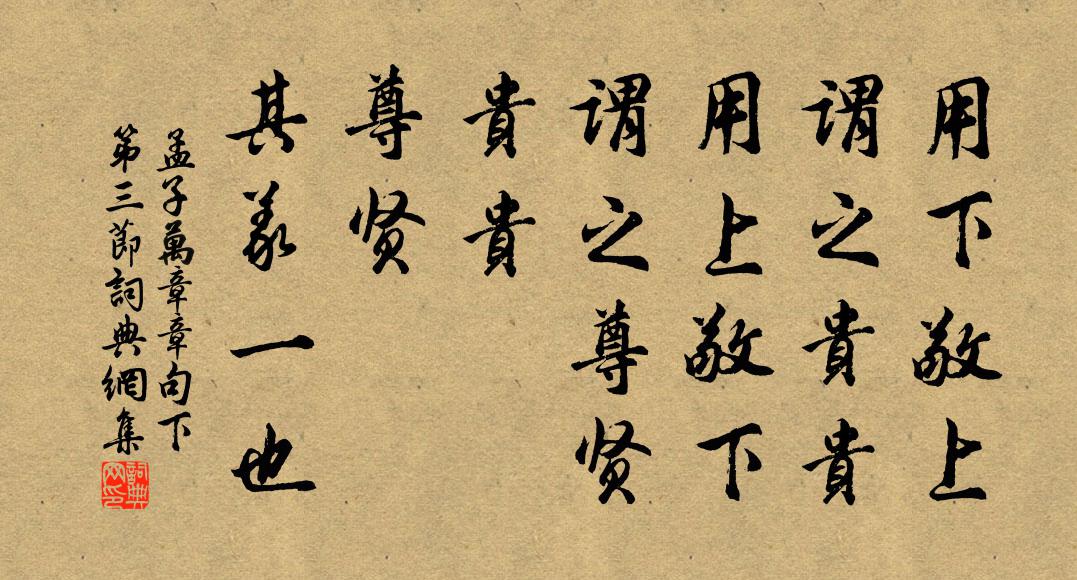 用下敬上
謂之貴貴
用上敬下
謂之尊贤
貴貴
尊贤
其义一也
孟子萬章章句下
第三節詞典網集
詞典网印